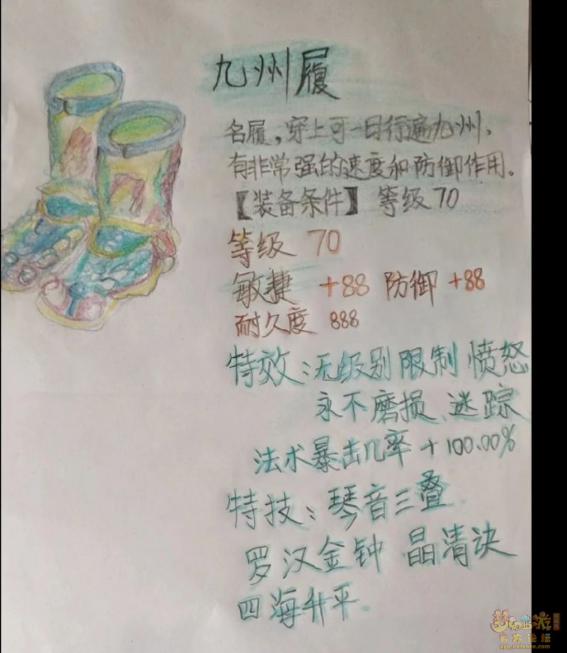 九州履
名履，穿上可一日行遍九州，
有非常强的速度和防御作用。
【装备条件】 等级70
等级 70
敏捷 +88 防御 +88
耐久度 888
特效：无级别限制 愤怒
永不磨损 迷踪
法术暴击几率+100.00%
特技：琴音三叠
罗汉金钟 晶清诀
四海升平.